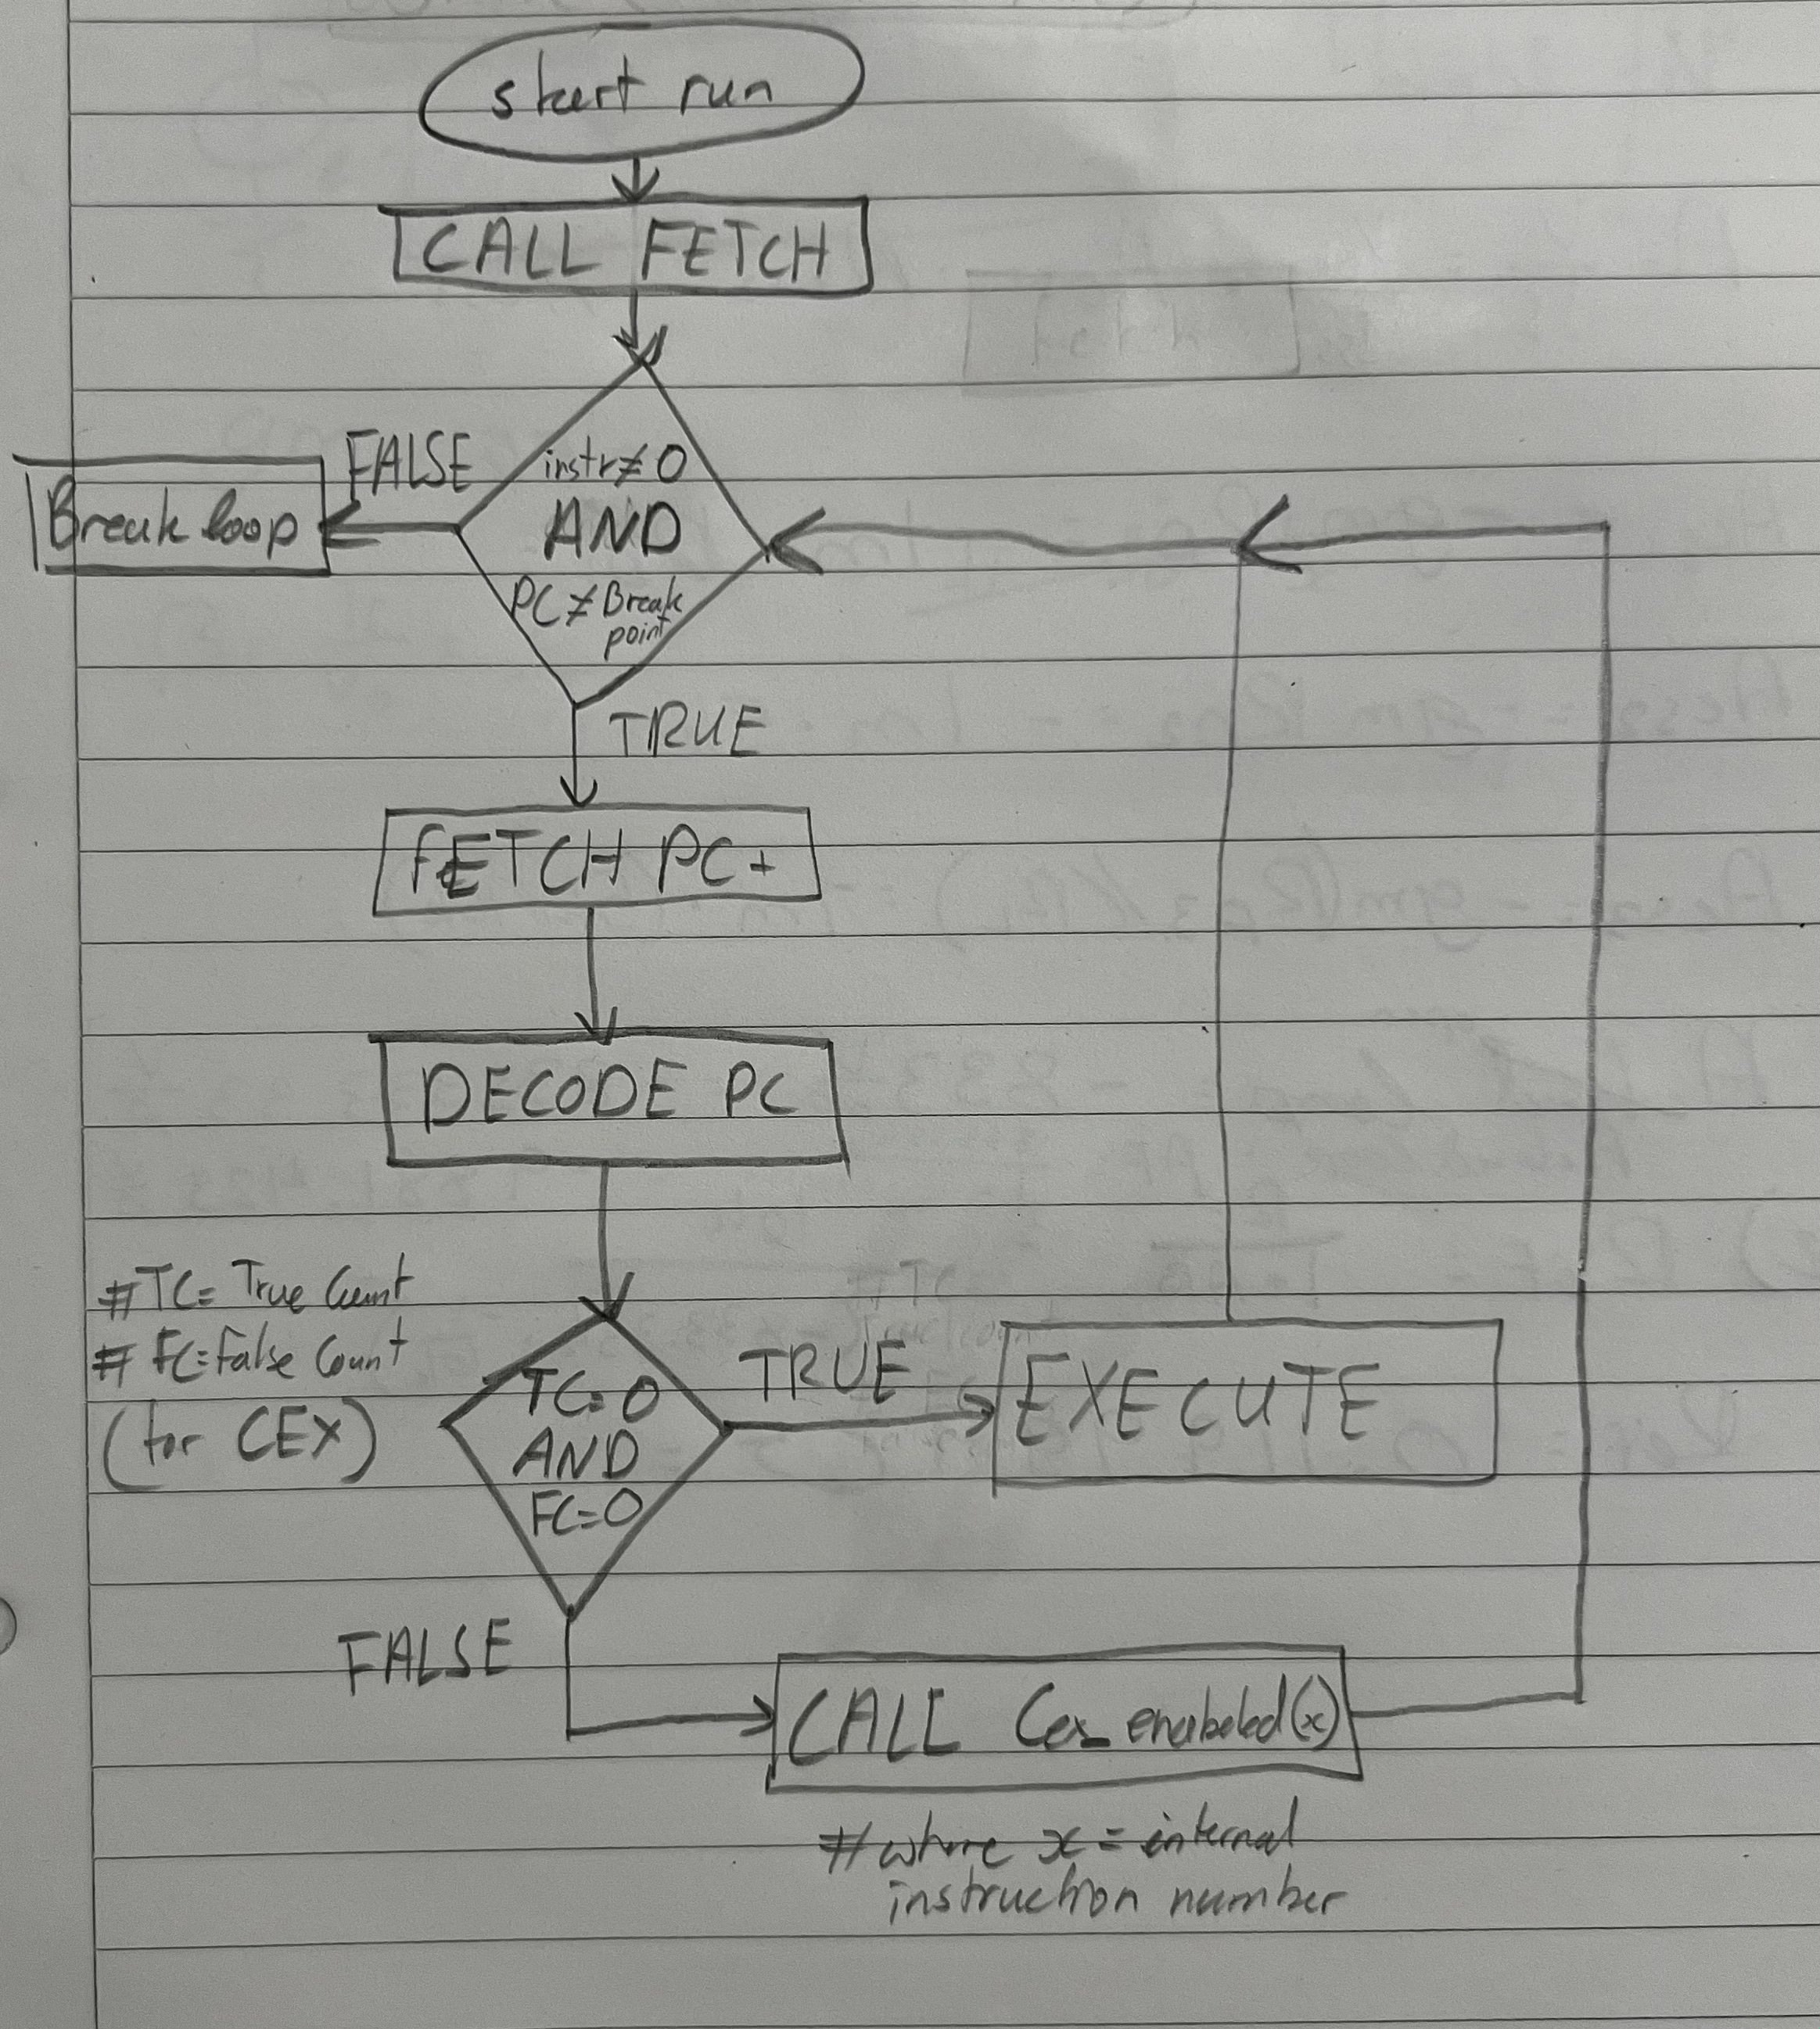 start run
CALL FETCH
FALSE
instr≠0
AND
PC≠Break
point
Break loop
TRUE
FETCH PC+
DECODE PC
#TC= True Count
# FC=False Count
(for CEX)
TC=0
AND
FC=0
TRUE
EXECUTE
FALSE
CALL Cex_enabeled(x)
#where x = internal
instruction number